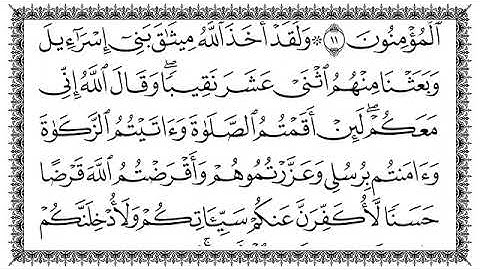 ٱلْمُؤْمِنُونَ ١١ ۞ وَلَقَدْ أَخَذَ ٱللَّهُ مِيثَٰقَ بَنِىٓ إِسْرَٰٓءِيلَ
وَبَعَثْنَا مِنْهُمُ ٱثْنَىْ عَشَرَ نَقِيبًا ۖ وَقَالَ ٱللَّهُ إِنِّى
مَعَكُمْ ۖ لَئِنْ أَقَمْتُمُ ٱلصَّلَوٰةَ وَءَاتَيْتُمُ ٱلزَّكَوٰةَ
وَءَامَنتُم بِرُسُلِى وَعَزَّرْتُمُوهُمْ وَأَقْرَضْتُمُ ٱللَّهَ قَرْضًا
حَسَنًا لَّأُكَفِّرَنَّ عَنكُمْ سَيِّـَٔاتِكُمْ وَلَأُدْخِلَنَّكُمْ